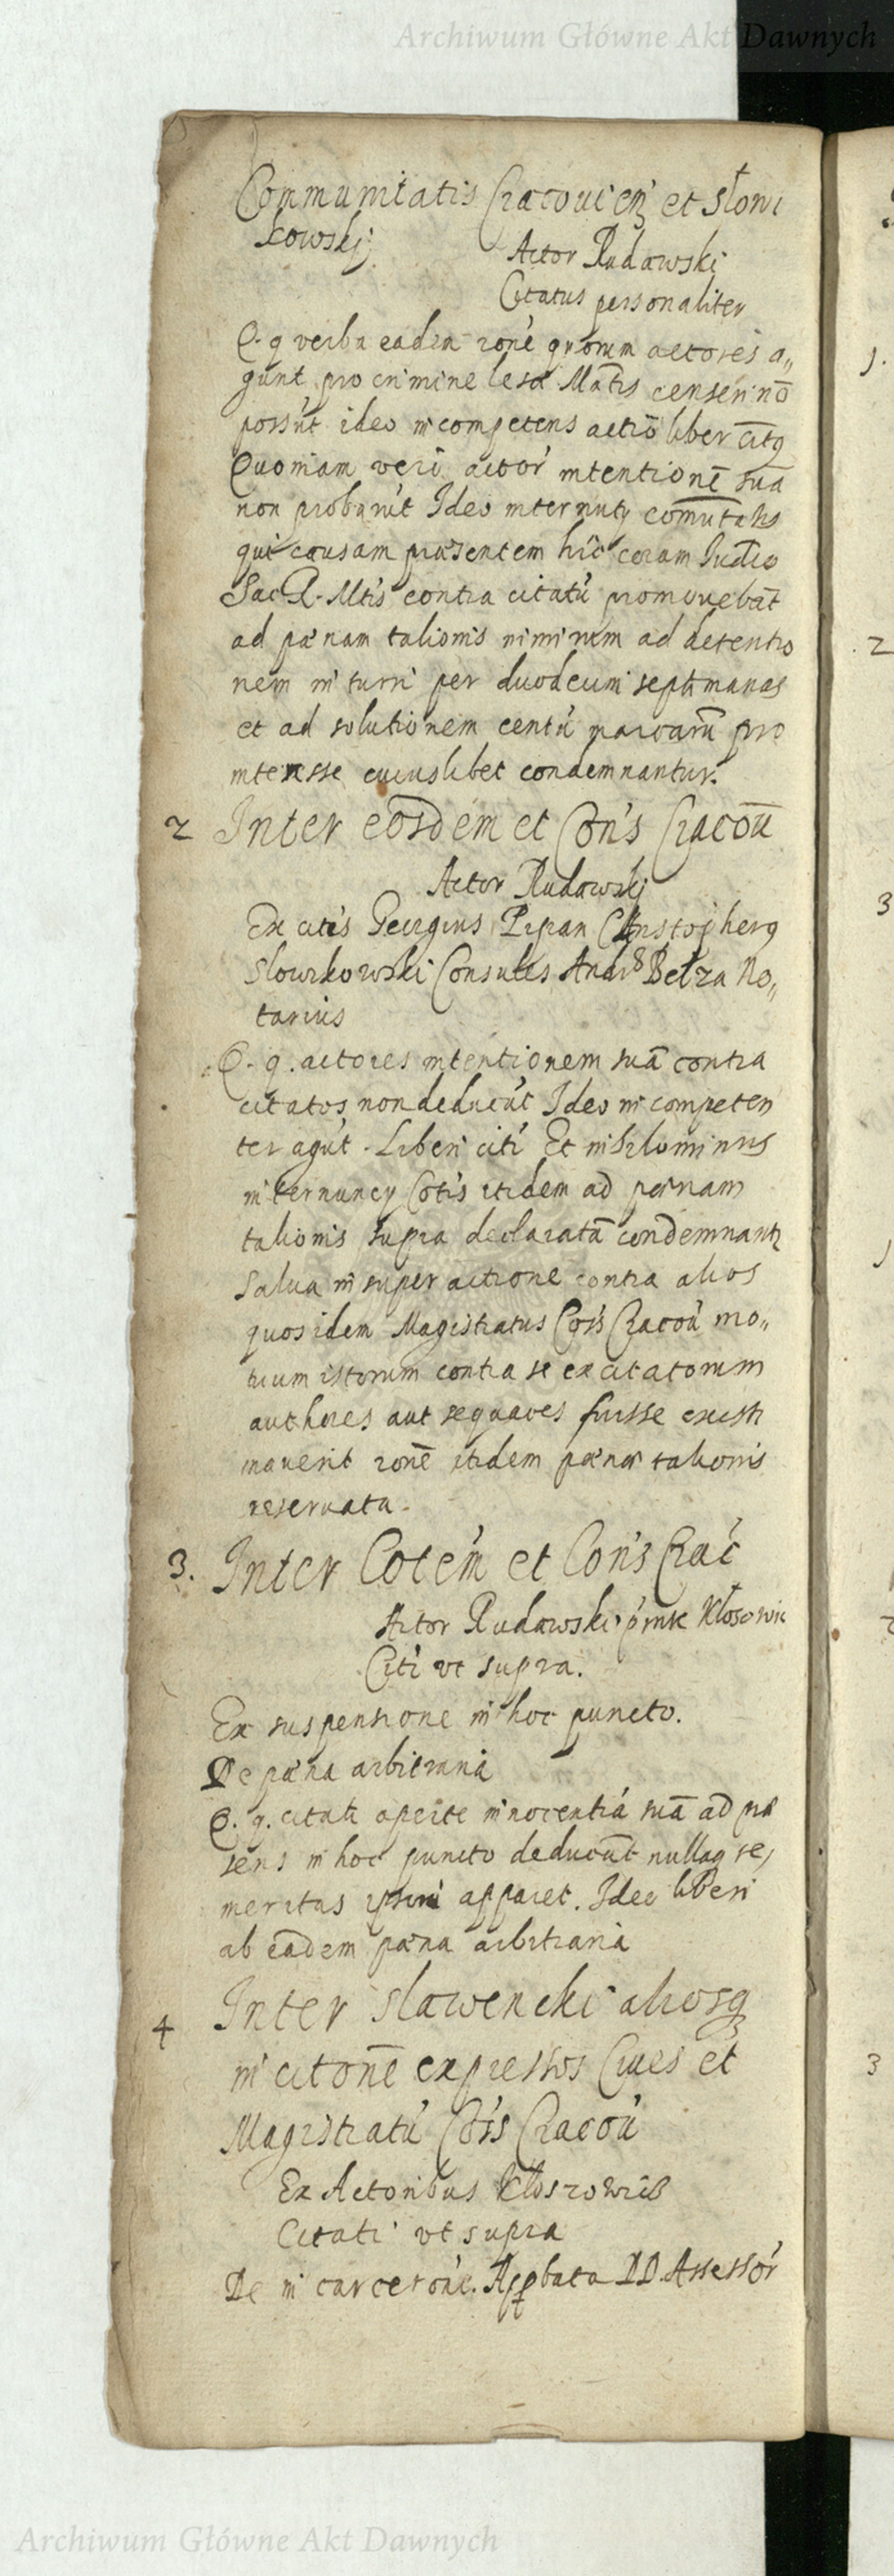 Archiwum Główne Akt Dawnych
Communitatis Cracouien et Słowi
kowskj
Actor Rudawski
Citatus personaliter
Q. q verba eadem rone quorum actores a„
gunt pro crimine lesae Mattis censeri nō
possut ideo incompetens actio liber citq
Quoniam vero actor intentionē suā
non probarut Ideo internuty comutatis
qui causam praesentem hic coram Iudio
Sac R. Mtis contra citatu promouebāt
ad paenam talionis nimirum ad detentio
nem in turri per duodecim septimanas
et ad solutionem centu marcarū pro
interesse cuiuslibet condemnantur.
2 Inter eosdem et Cons Cracou
Actor Rudawskj
Ex citis Georgius Pipan Christopherq
Slowikowski Consules Andrs Belza No„
tarius
Q. q. actores intentionem suā contra
citatos non deducut Ideo incompeten
ter agut. Liberi citi Et nihilominus
internuncy Cotis itidem ad paenam
talionis supra declaratā condemnantr
Salua insuper actione contra alios
quos idem Magistratus Coss Cracou mo„
tuum istorum contra se excitatorum
authores aut sequaces fuisse existi
mauerit ronē itidem paenae talionis
reseruata.
3. Inter Cotem et Cons Crac
Actor Rudawski pnte Kłosowic
Citi vt supra.
Ex suspensione in hoc puncto.
De paena arbitraria
Q. q. citati aperte innocentiā suā ad prae
sens in hoc puncto deducūt nullaq te,
meritas ipsorum apparet. Ideo liberi
ab eadem paena arbitraria
4 Inter Slawencki aliosq
in citonē expressos Ciues et
Magistratu Coss Cracou
Ex Actoribus Kłoszowicz
Citati vt supra
De incarcetone. Approbata DD. Assessor
1.
2
3
1
2
3
Archiwum Główne Akt Dawnych